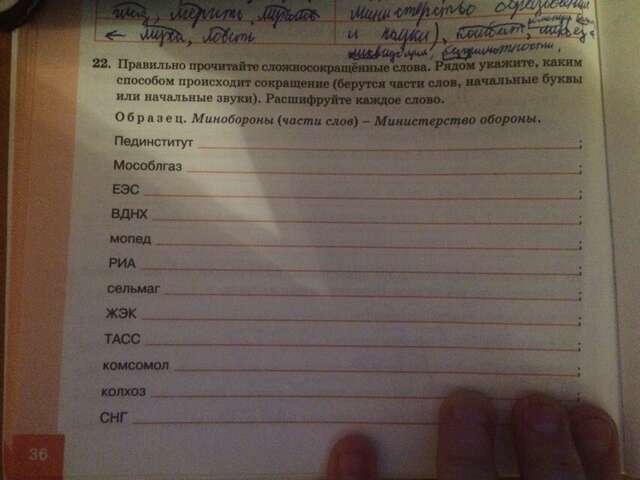 мерить,
министерство образования
← муха, ловить
и науки),
22. Правильно прочитайте сложносокращённые слова. Рядом укажите, каким
способом происходит сокращение (берутся части слов, начальные буквы
или начальные звуки). Расшифруйте каждое слово.
Образец. Минобороны (части слов) – Министерство обороны.
Пединститут ;
Мособлгаз ;
ЕЭС ;
ВДНХ ;
мопед ;
РИА ;
сельмаг ;
ЖЭК ;
ТАСС ;
комсомол ;
колхоз ;
СНГ ;
36